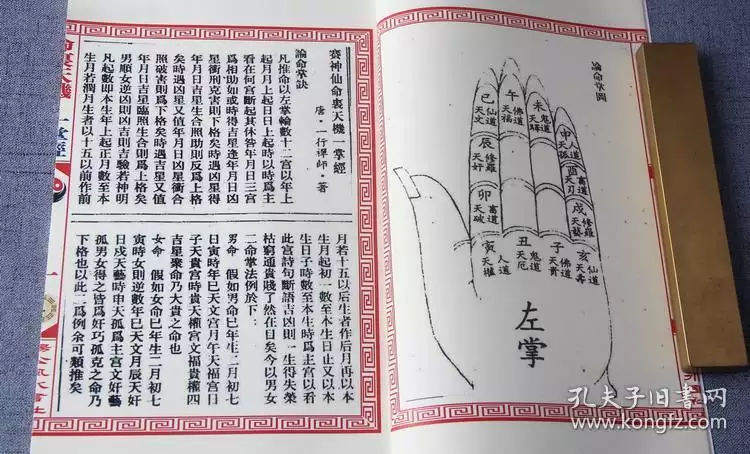 論命掌圖
午
佛道
天福
未
鬼道
天驛
巳
仙道
天文
申
人道
天孤
辰
修羅
天奸
酉
畜道
天刃
卯
畜道
天破
戌
修羅
天藝
寅
人道
天權
丑
鬼道
天厄
子
佛道
天貴
亥
仙道
天壽
左掌
賽神仙命裏天機一掌經
唐·一行禪師 著
論命掌訣
凡推命以左掌輪數十二宮以年上
起月月上起日日上起時以時爲主
看在何宮斷起其休咎年月日三宮
爲相助如或時得吉星逢年月日凶
星衝刑克害則下格矣時遇凶星得
年月日吉星生合照助則反爲上格
矣時遇凶星又值年月日凶星衝合
照破害則爲下格矣時遇吉星又值
年月日吉星臨照生合則爲上格矣
男順女逆凶則凶吉則吉驗若神明
凡起數即本生年上起正月數至本
生月若潤月生者以十五以前作前
月若十五以后生者作后月再以本
生月起初一數至本生日止又以本
生日子時數至本生時爲主宮以看
此宮詩句斷語吉凶則一生得失榮
枯窮通貴賤了然在目矣今以男女
二命掌法例於下：
男命 假如男命巳年生二月初七
日寅時年巳天文宮月午天福宮日
子天貴宮時貴天權宮文福貴權四
吉星聚命乃大貴之命也
女命 假如女命巳年生二月初七
寅時女則逆數年巳天文月辰天奸
日戌天藝時申天孤爲主宮文奸藝
孤男女得之皆爲奸巧孤克之命乃
下格也以此二爲例余可類推矣
一掌經
一
孔夫子旧书网
www.kongfz.com